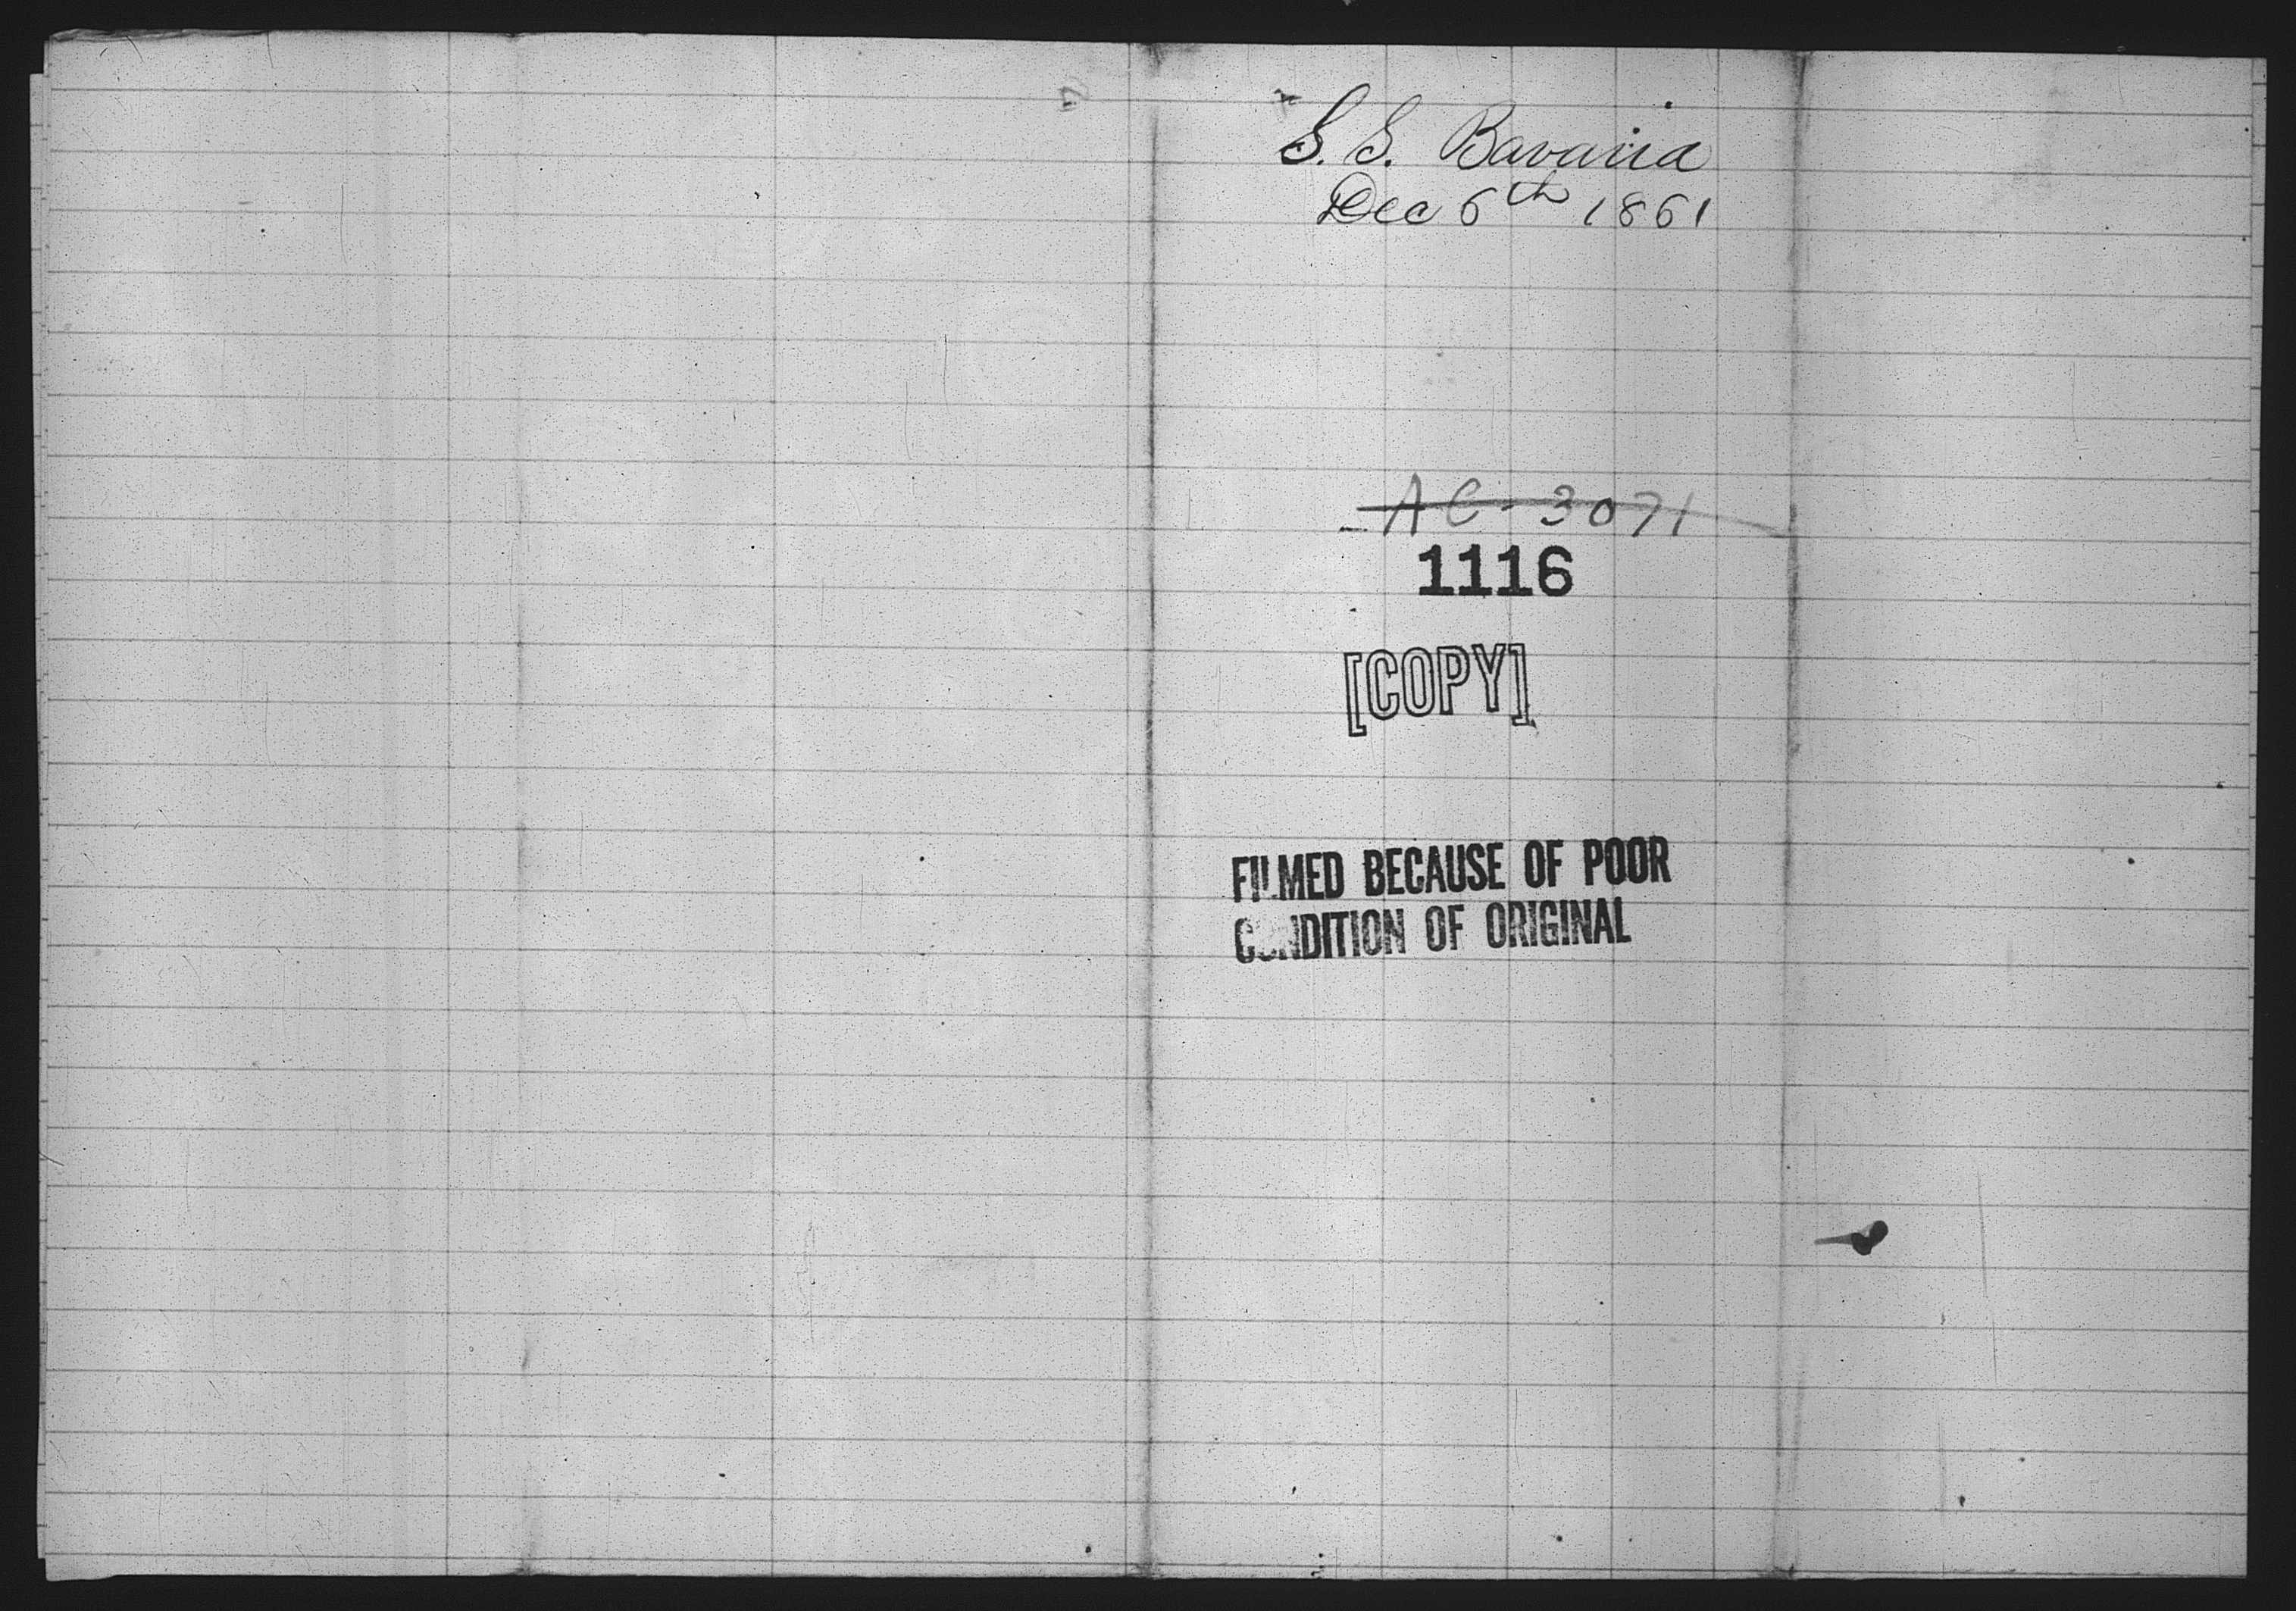 S. S. Bavaria
Dec 6th 1861
AC-3071
1116
[COPY]
FILMED BECAUSE OF POOR
CONDITION OF ORIGINAL